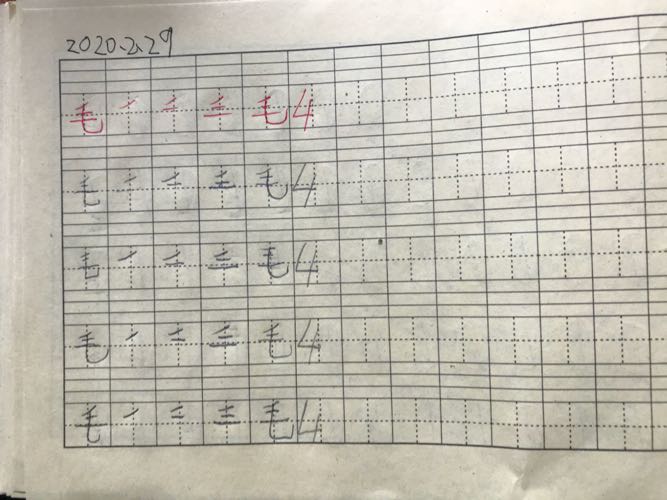 2020.2.29
毛 ㇒ 二 三 毛 4
毛 ㇒ 二 三 毛 4
毛 ㇒ 二 三 毛 4
毛 ㇒ 二 三 毛 4
毛 ㇒ 二 三 毛 4